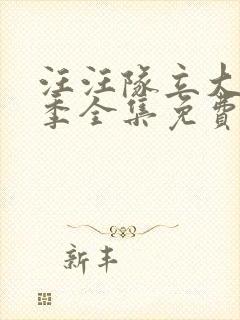 汪汪隊立大
季全集免費
新丰